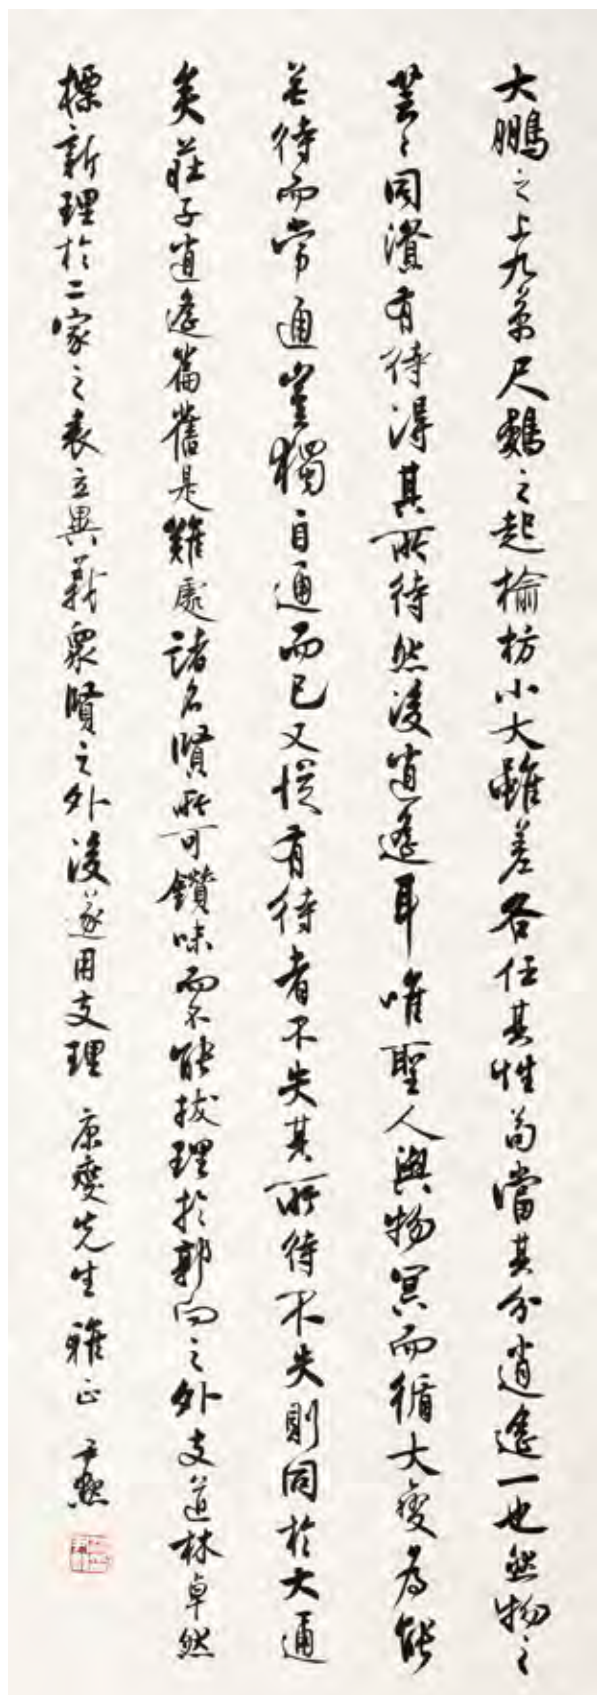 大鵬之上九萬尺鷃之起榆枋小大雖差各任其性苟當其分逍遙一也然物之
芸芸同資有待得其所待然後逍遙耳唯聖人與物冥而循大變為能
無待而常通豈獨自通而已又從有待者不失其所待不失則同於大通
矣莊子逍遙篇舊是難處諸名賢所可鑽味而不能拔理於郭向之外支道林卓然
標新理於二家之表立異義眾賢之外後遂用支理 康燮先生 雅正 尹默